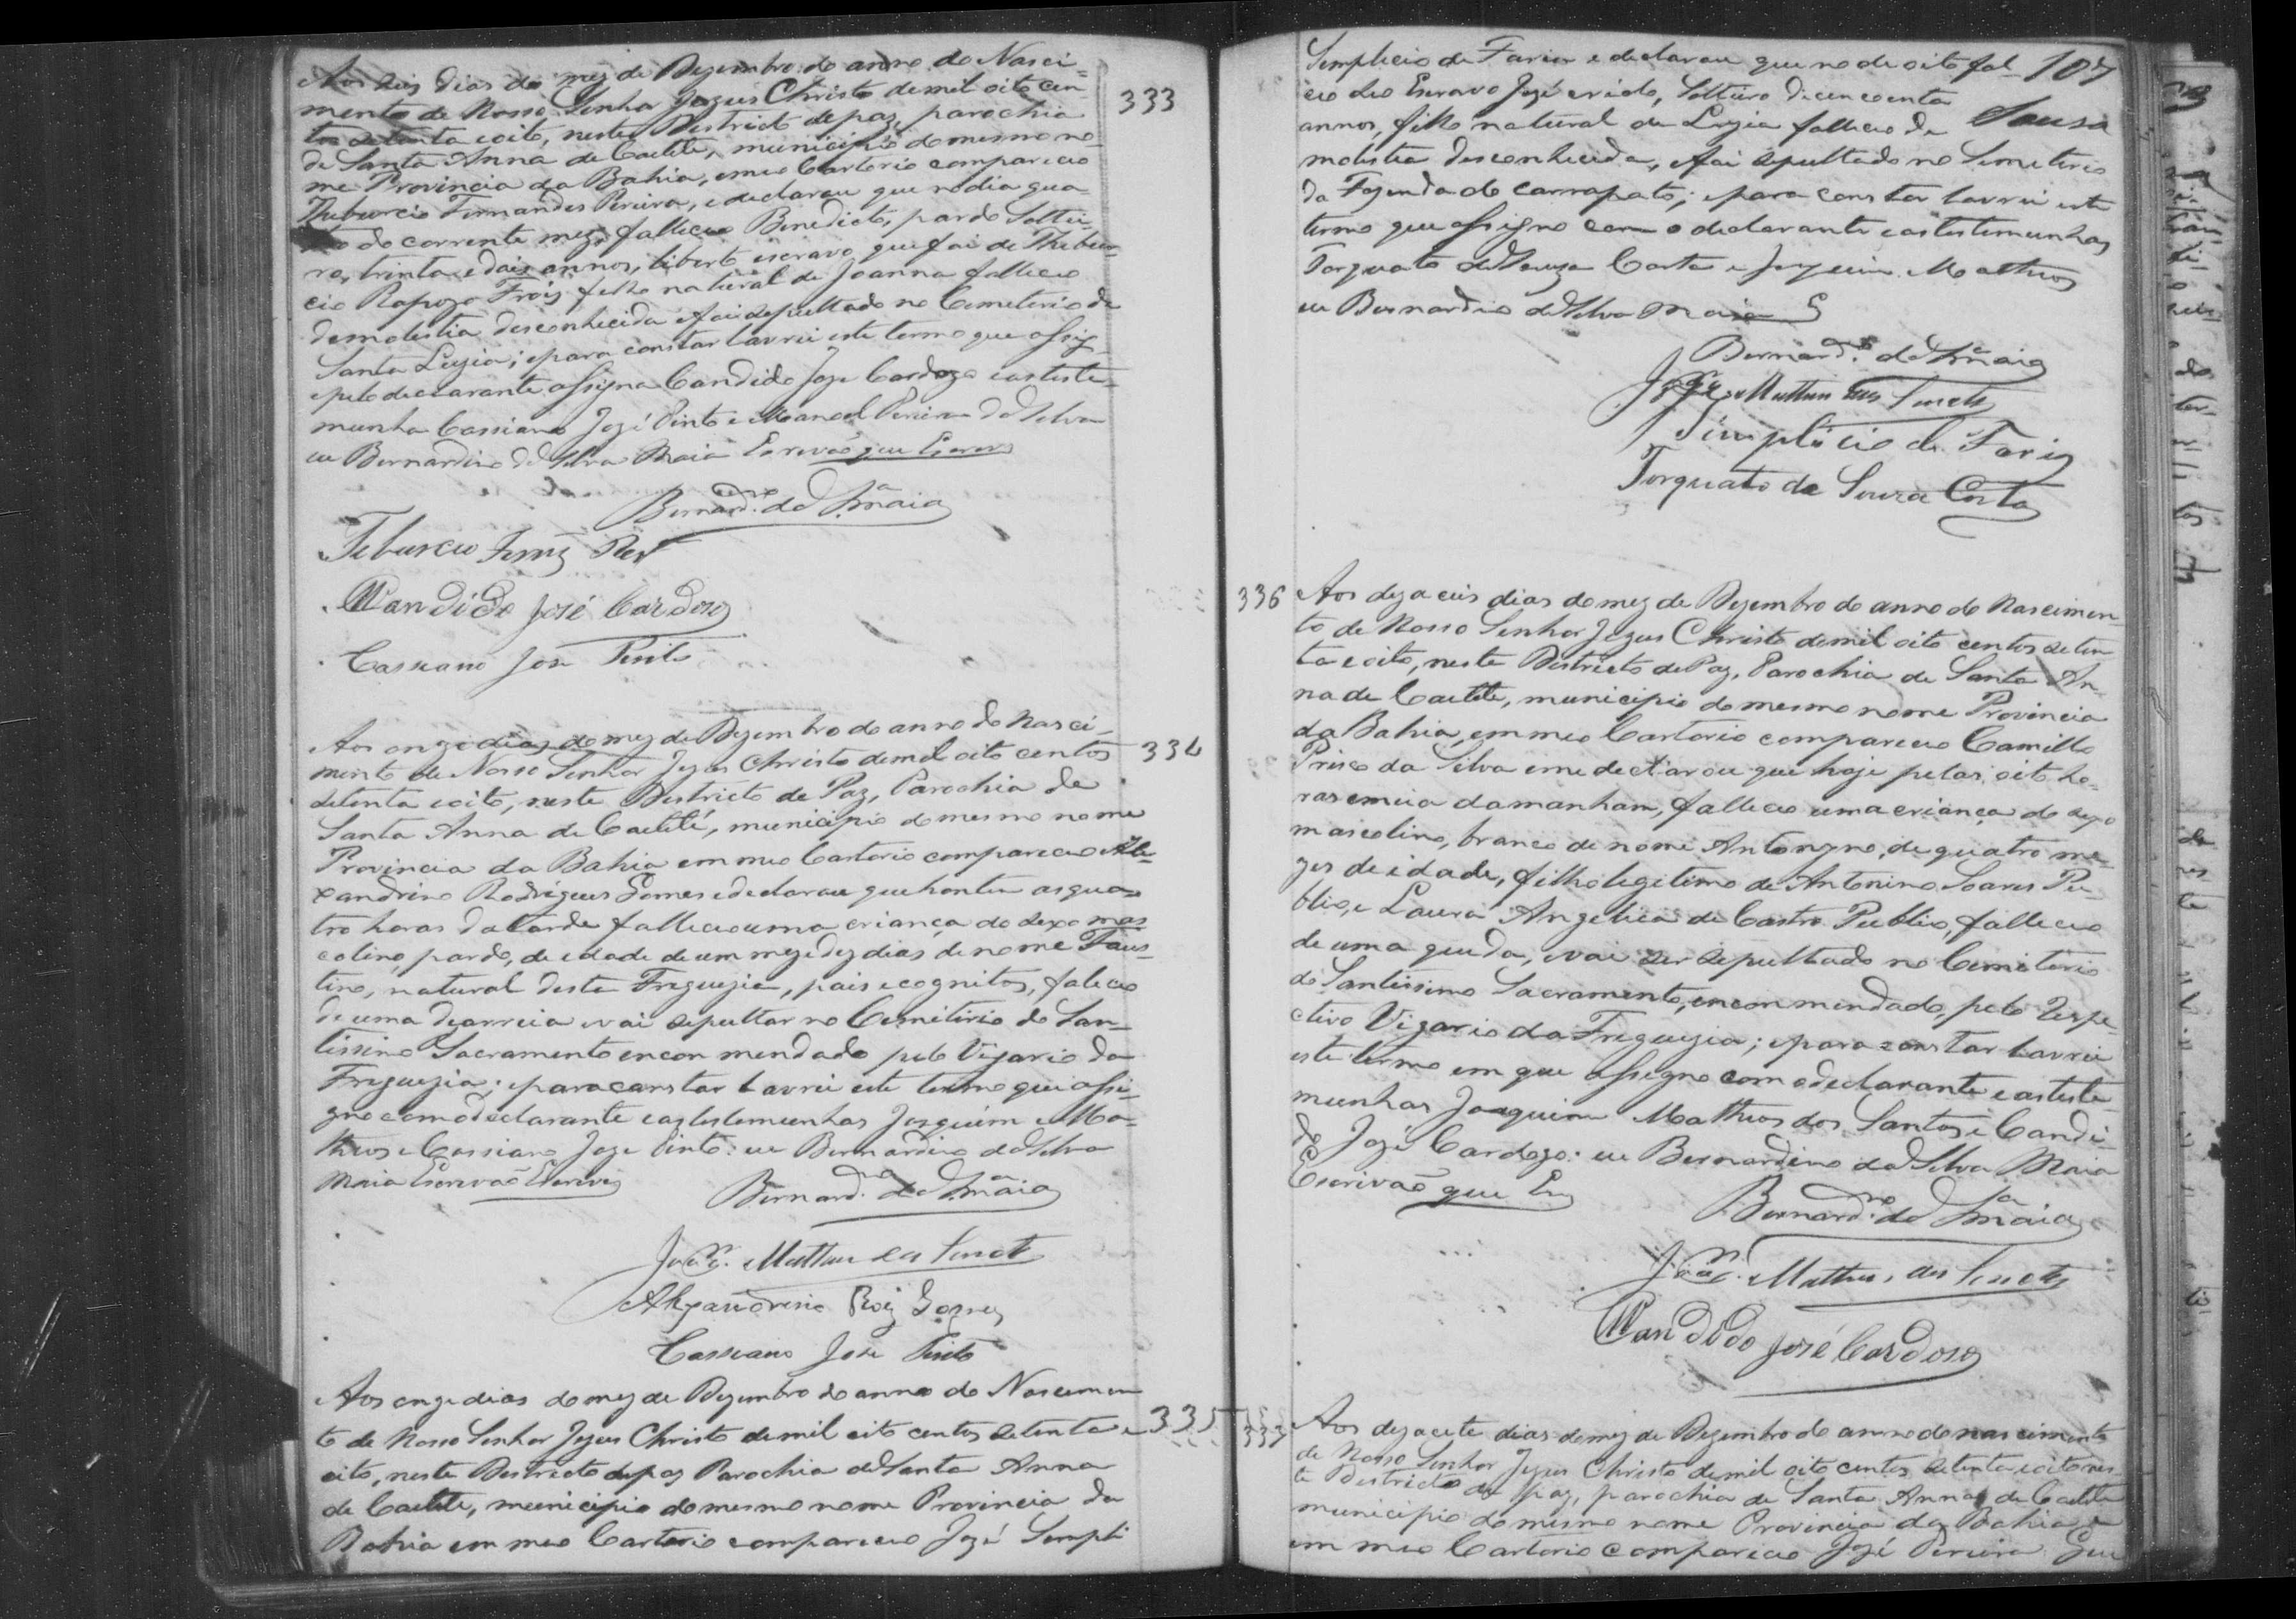 Aos dias do mez de Dezembro do anno do Nasci=
mento de Nosso Senhor Jezus Christo de mil oito cen
tos setenta e oito, neste Districto de paz, parochia
de Santa Anna de Caetité, municipio do mesmo no-
me Provincia da Bahia, em meo Cartorio compareceo
Theburcio Fernandes Pereira, e declarou que no dia qua
do corrente mez, falleceo Benedicto, pardo Soltei-
ro, trinta e dois annos, liberto escravo que foi de Thebur-
cio Rapozo Froiz filho natural de Joanna falleceo
de molestia desconhecida e foi sepultado no Cemeterio de
Santa Luzia; e para constar lavrei este termo que assig-
e pelo declarante assigna Candido Joze Cardozo e as teste-
munha Cassiano Jozé Pinto e Manoel Pereira da Silva
eu Bernardino da Silva Maia Escrevão que Escrevi
Bernard.no da S.a Maia
Teburcio Fernz Per.a
Candido José Cardoso
Cassiano Jose Pinto
333
Aos onze dias do mez de Dezembro do anno do Nasci-
mento de Nosso Senhor Jezus Christo de mil oito centos
setenta e oito, neste Districto de Paz, Parochia de
Santa Anna de Caetité, municipio do mesmo nome
Provincia da Bahia em meo Cartorio compareceo Ale-
xandrino Rodrigues Gomes e declarou que hontem as qua-
tro horas da tarde falleceo uma criança do sexo mas
colino, pardo, de edade de um mez e dez dias de nome Faus-
tino, natural desta Freguezia, pais ecognitos, faleceo
de uma dearreia e vai sepultar no Cemiterio do San-
tissimo Sacramento encommendado pelo Vigario da
Freguezia; e para constar lavrei este termo que assi-
gno com o declarante e as testemunhas Joaquim Ma-
theos e Cassiano Joze Pinto: eu Bernardino da Silva
Maia Escrevão Escrevi
Bernard.no da S.a Maia
Joaq.m Matheus dos Santos
Alexandrino Roiz Gomes
Cassiano Jose Pinto
334
Aos onze dias do mez de Dezembro do anno do Nascimen
to de Nosso Senhor Jezus Christo de mil oito centos setenta e
oito, neste Districto de paz Parochia de Santa Anna
de Caetite, municipio do mesmo nome Provincia da
Bahia em meo Cartorio compareceo Jozé Simpli
335
Simplicio de Faria e declarou que no de oito fal
ceo seo Escravo Jozé criolo, Solteiro de cencoenta
annos, filho natural de Luzia falleceo de
molestia desconhecida, e foi sepultado no Semeterio
da Fazenda do Carrapato; e para constar lavrei este
termo que assigno com o declarante e as testemunhas
Torquato de Souza Costa e Joaquim Matheos
eu Bernardino da Silva Maia E
107
Sousa
Bernard.no da S.a Maia
Matheus dos Santos
Simplicio de Faria
Torquato de Souza Costa
336
Aos dezaceis dias do mez de Dezembro do anno do Nascimen
to de Nosso Senhor Jezus Christo de mil oito centos seten
ta e oito, neste Districto de Paz, Parochia de Santa An-
na de Caetite, municipio do mesmo nome Provincia
da Bahia, em meo Cartorio compareceo Camillo
Prisco da Silva e me declarou que hoje pelas oito ho-
ras e meia da manham, falleceo uma criança do sexo
mascolino, branco de nome Antonyno, de quatro me-
zes de idade, filho legitimo de Antonino Soares Pu-
blio, e Laura Angelica de Castro Publio, falleceo
de uma queda, e vai ser sepultado no Cemiterio
do Santissimo Sacramento, encommendado, pelo Respe-
ctivo Vigario da Freguezia; e para constar lavrei
este termo em que assigno com o declarante e as teste-
munhas Joaquim Matheos dos Santos e Candi-
do Jozé Cardozo: eu Bernardino da Silva Maia
Escrivão que Es
Bernard.no da S.a Maia
Joaq.m Matheus dos Santos
Candido José Cardoso
Aos dezacete dias do mez de Dezembro do anno do nascimento
de Nosso Senhor Jezus Christo de mil oito centos setenta e oito nes-
te Districto de paz, parochia de Santa Anna de Caetite
municipio do mesmo nome Provincia da Bahia e
em meo Cartorio compareceo Jozé Pereira